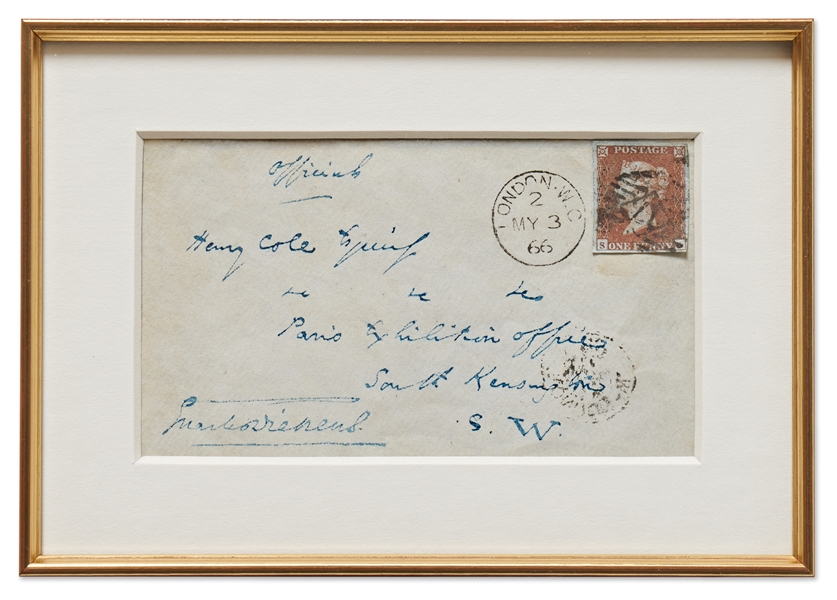 Official
POSTAGE
LONDON · W.C
2
MY 3
66
S ONE PENNY
Henry Cole Esquire
&c &c &c
Paris Exhibition Offices
South Kensington
S. W.
Charles Dickens